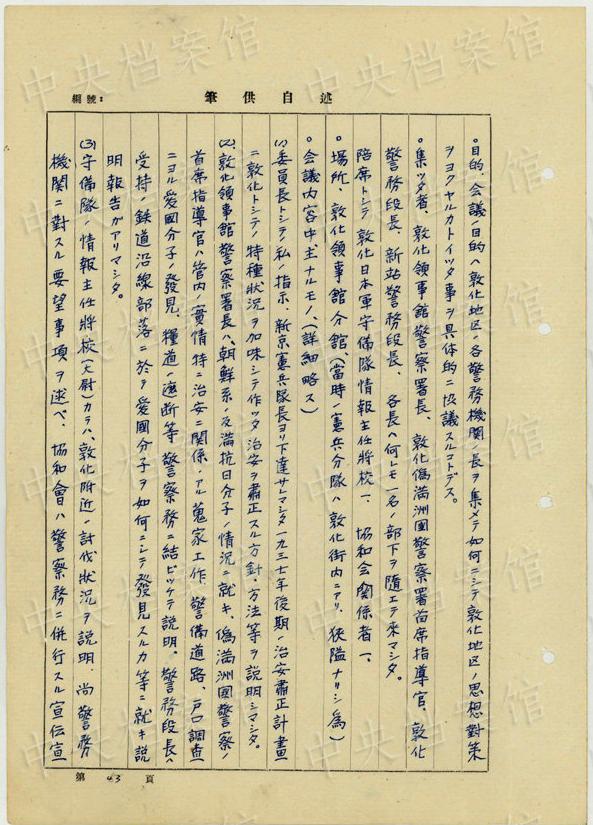 編號:
筆供自述
○目的、会議ノ目的ハ敦化地区ノ各警務機関ノ長ヲ集メテ如何ニシテ敦化地区ノ思想対策
ヲヨクヤルカトイッタ事ヲ具体的ニ協議スルコトデス。
○集ッタ者、敦化領事館警察署長、敦化偽満洲國警察署首席指導官、敦化
警務段長、新站警務段長、各長ハ何レモ一名ノ部下ヲ隨エテ来マシタ。
陪席トシテ敦化日本軍守備隊情報主任将校一、協和会関係者一、
○場所、敦化領事館分館、(當時ノ憲兵分隊ハ敦化街内ニアリ、狭隘ナリシ為)
○会議内容中主ナルモノ、(詳細略ス)
(1)委員長トシテノ私ノ指示、新京憲兵隊長ヨリ下達サレマシタ一九三七年後期ノ治安粛正計畫
ニ敦化トシテノ特種状況ヲ加味シテ作ッタ治安ヲ粛正スル方針、方法等ヲ説明シマシタ。
(2)敦化領事館警察署長ハ、朝鮮系ノ反満抗日分子ノ情況ニ就キ、偽満洲國警察ノ
首席指導官ハ管内ノ實情特ニ治安ニ関係ノアル蒐家工作、警備道路、戸口調査
ニヨル愛國分子ノ發見、糧道ノ遮断等警察務ニ結ビツケテ説明、警務段長ハ
受持ノ鉄道沿線部落ニ於ケル愛國分子ヲ如何ニシテ發見スルカ等ニ就キ説
明報告ガアリマシタ。
(3)守備隊ノ情報主任将校(大尉)カラハ、敦化附近ノ討伐状況ヲ説明、尚警務
機関ニ對スル要望事項ヲ述ベ、協和會ハ警察務ニ併行スル宣伝宣
第 43 頁
中央档案馆